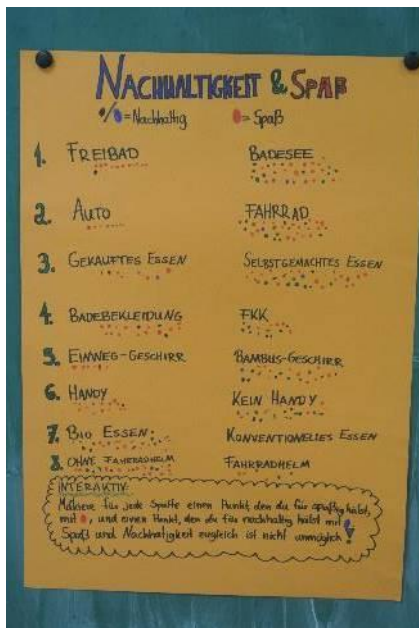 NACHHALTIGKEIT & SPAß
/ = Nachhaltig = Spaß
1. FREIBAD BADESEE
2. AUTO FAHRRAD
3. GEKAUFTES ESSEN SELBSTGEMACHTES ESSEN
4. BADEBEKLEIDUNG FKK
5. EINWEG-GESCHIRR BAMBUS-GESCHIRR
6. HANDY KEIN HANDY
7. BIO ESSEN KONVENTIONELLES ESSEN
8. OHNE FAHRRADHELM FAHRRADHELM
INTERAKTIV
Markiere für jede Spalte einen Punkt, den du für spaßig hälst,
mit , und einen Punkt, den du für nachhaltig hälst mit
Spaß und Nachhaltigkeit zugleich ist nicht unmöglich !